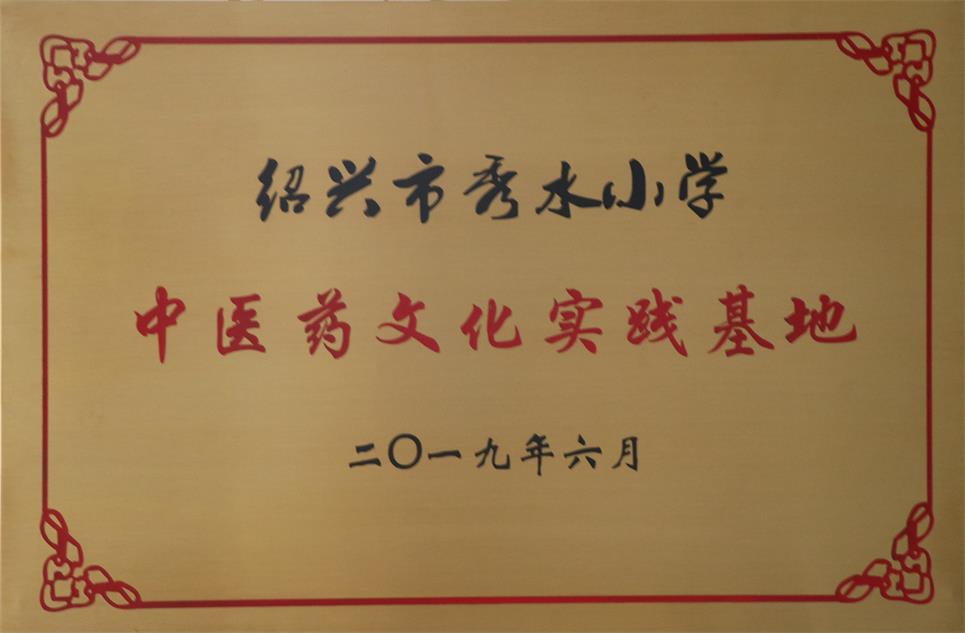 绍兴市秀水小学
中医药文化实践基地
二〇一九年六月